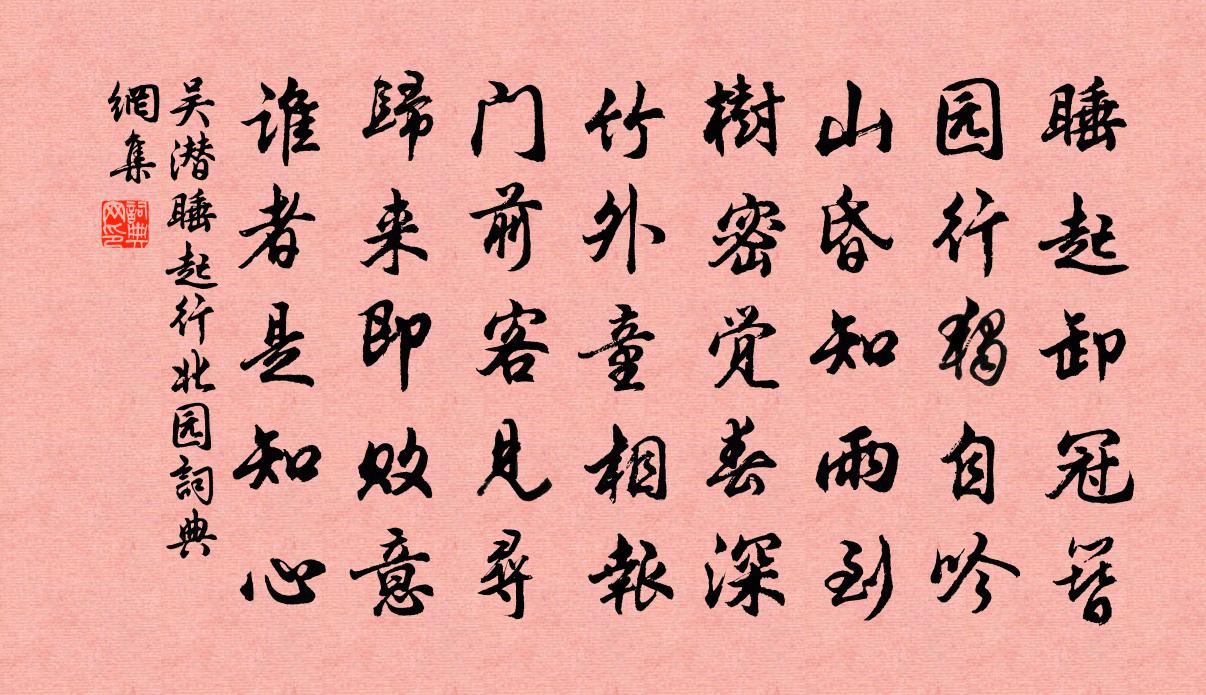 睡起卸冠簪
园行獨自吟
山昏知雨到
樹密觉春深
竹外童相報
门前客见尋
歸来即败意
谁者是知心
吴潜睡起行北园詞典
網集
詞典
网印